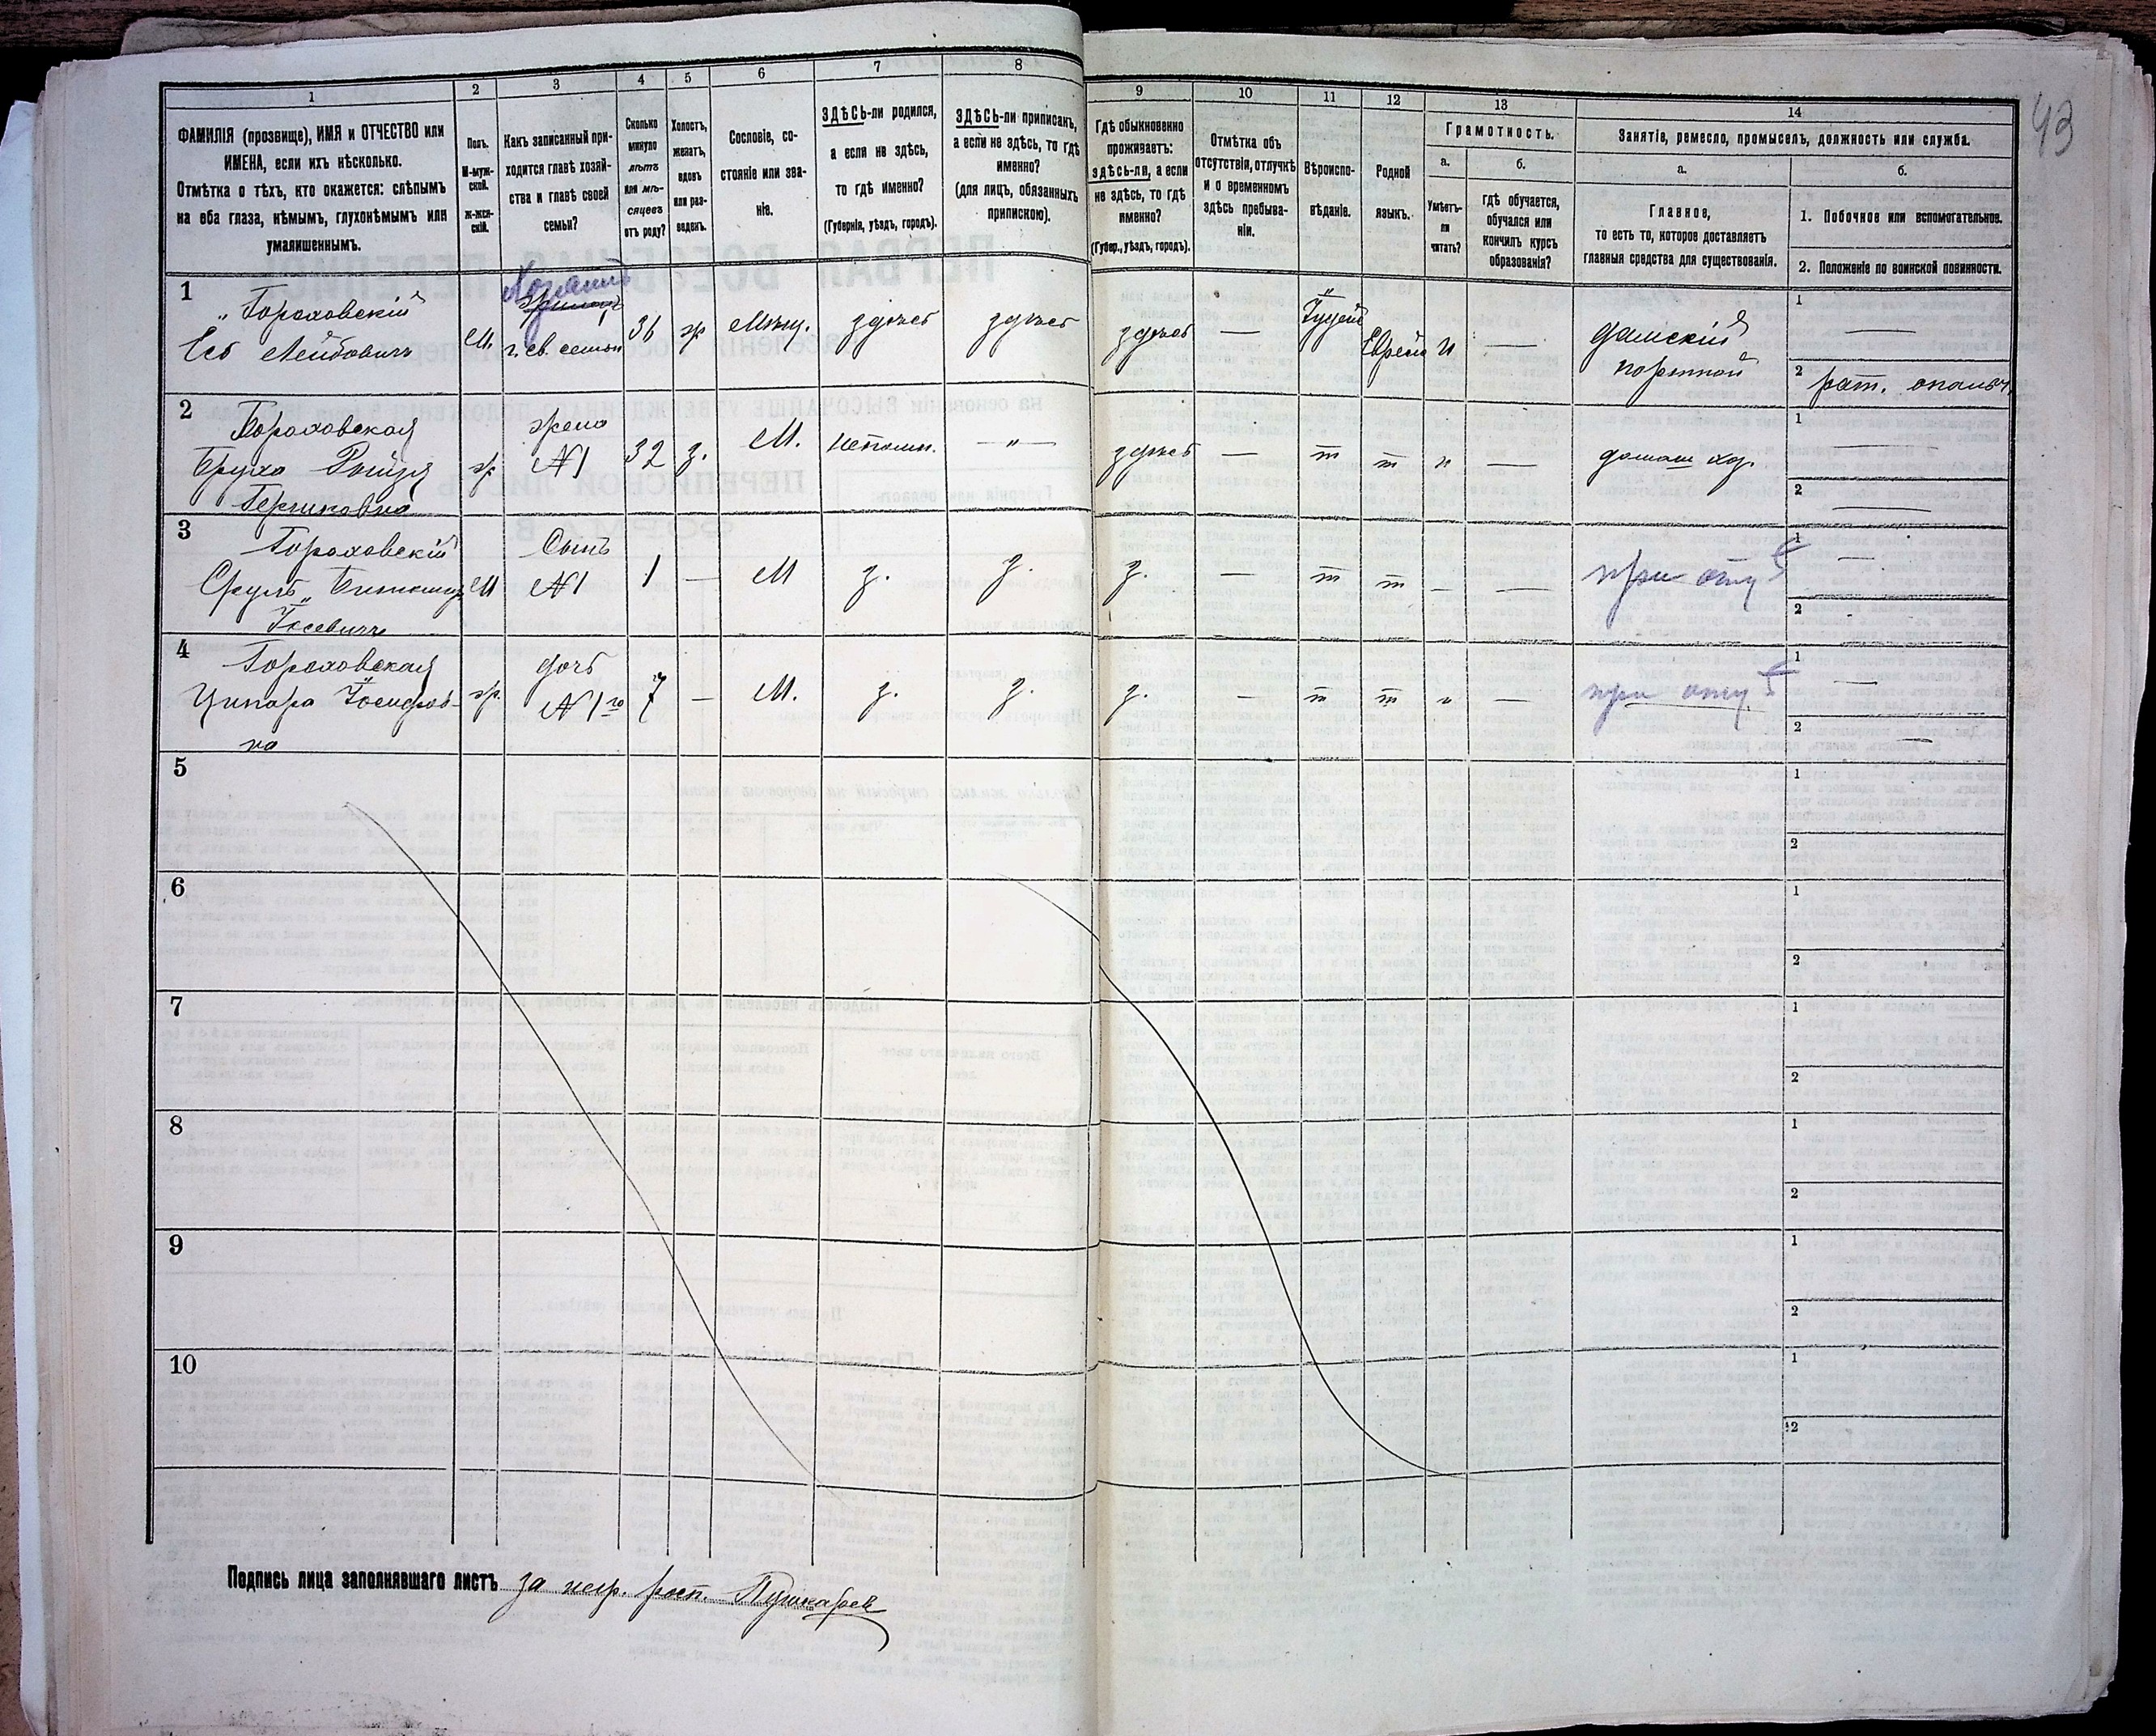 43
1
2
3
4
5
6
7
8
9
10
11
12
13
14
ФАМИЛІЯ (прозвище), ИМЯ и ОТЧЕСТВО или
ИМЕНА, если ихъ нѣсколько.
Отмѣтка о тѣхъ, кто окажется: слѣпымъ
на оба глаза, нѣмымъ, глухонѣмымъ или
умалишеннымъ.
Полъ.
М-муж-
ской.
Ж-жен-
скій.
Какъ записанный при-
ходится главѣ хозяй-
ства и главѣ своей
семьи?
Сколько
минуло
лѣтъ
или мѣ-
сяцевъ
отъ роду?
Холостъ,
женатъ,
вдовъ
или раз-
веденъ.
Сословіе, со-
стояніе или зва-
ніе.
ЗДѢСЬ-ли родился,
а если не здѣсь,
то гдѣ именно?
(Губернія, уѣздъ, городъ).
ЗДѢСЬ-ли приписанъ,
а если не здѣсь, то гдѣ
именно?
(для лицъ, обязанныхъ
припискою).
Гдѣ обыкновенно
проживаетъ:
здѣсь-ли, а если
не здѣсь, то гдѣ
именно?
(Губер., уѣздъ, городъ).
Отмѣтка объ
отсутствіи, отлучкѣ
и о временномъ
здѣсь пребыва-
ніи.
Вѣроиспо-
вѣданіе.
Родной
языкъ.
Грамотность.
а.
Умѣетъ-
ли
читать?
б.
гдѣ обучается,
обучался или
кончилъ курсъ
образованія?
Занятіе, ремесло, промыселъ, должность или служба.
а.
Главное,
то есть то, которое доставляетъ
главныя средства для существованія.
б.
1. Побочное или вспомогательное.
2. Положеніе по воинской повинности.
1
Гороховскій
Іесь Лейбовичъ
М.
Хозяинъ
г. св. семьи
36
ж
Мѣщ.
здѣсь
здѣсь
здѣсь
—
Іудей
Еврей
н
—
дамскій
портной
1 —
2 рат. ополч.
2
Гороховская
Бруха Рейзя
Гершковна
ж
жена
№1
32
з.
М.
непомн.
— „ —
здѣсь
—
т
т
н
—
домаш хоз.
1 —
2 —
3
Гороховскій
Сруль
Іосевичъ
М
Сынъ
№1
1
—
М
з.
з.
з.
—
т
т
—
—
при отцѣ
1 —
2
4
Гороховская
Ципора Іосифов-
на
ж.
дочь
№1го
7
—
М.
з.
з.
з.
—
т
т
н
—
при отцѣ
1 —
2 —
5
1
2
6
1
2
7
1
2
8
1
2
9
1
2
10
1
2
Подпись лица заполнявшаго листъ за негр. росп. Пушкарев